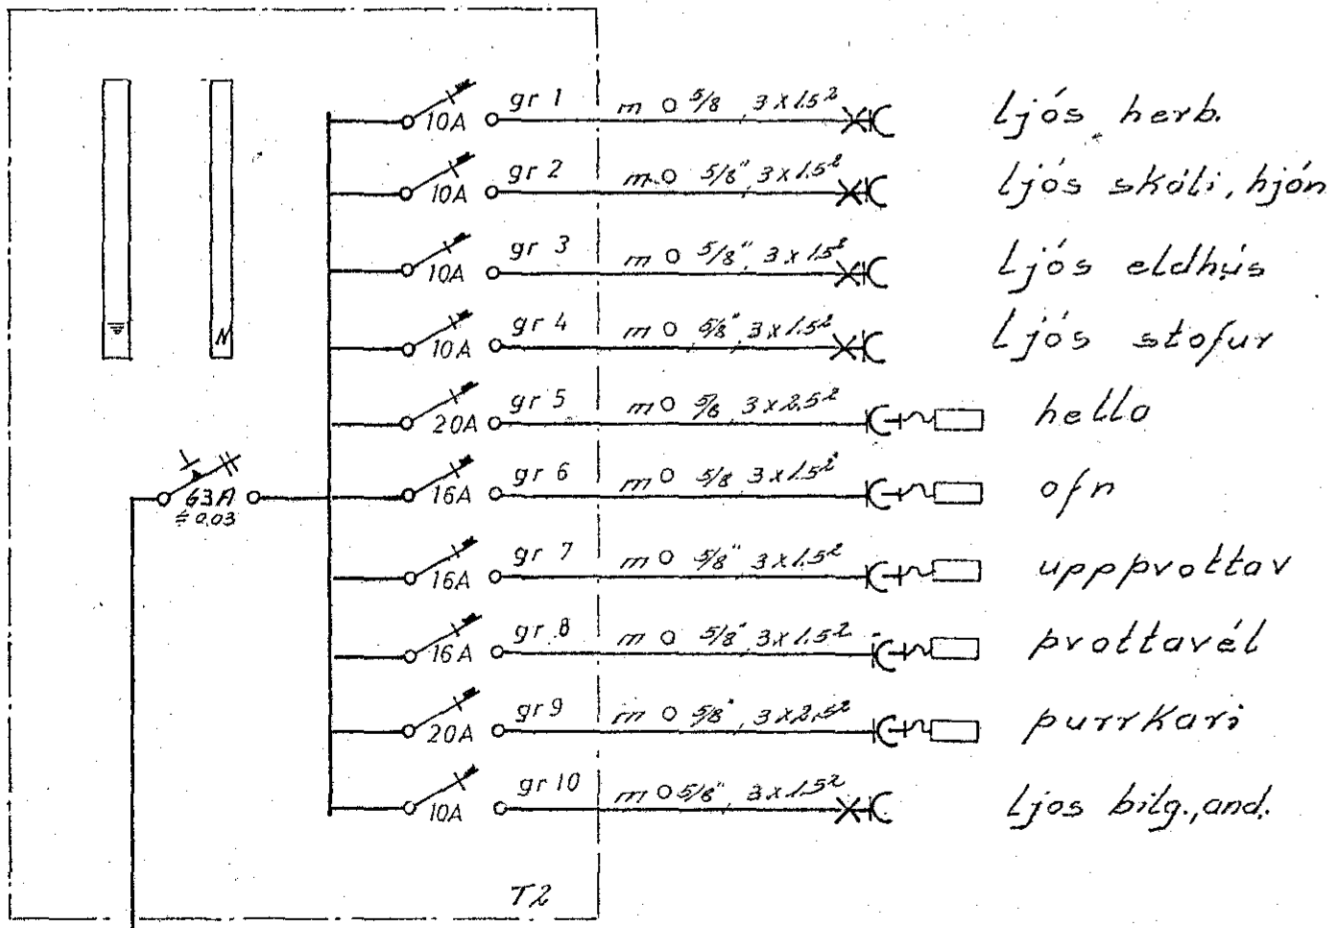 10A gr 1 m 5/8 3x1.5² ljós herb.
10A gr 2 m 5/8" 3x1.5² ljós skáli, hjón
10A gr 3 m 5/8", 3x1.5² ljós eldhús
N 10A gr 4 m 5/8" 3x1.5² ljós stofur
20A gr 5 m 5/8 3x2.5² hella
63A 16A gr 6 m 5/8 3x1.5² ofn
0.03
16A gr 7 m 5/8" 3x1.5² uppþvottav
16A gr 8 m 5/8" 3x1.5² þvottavél
20A gr 9 m 5/8", 3x2.5² þurrkari
10A gr 10 m 5/8", 3x1.5² ljos bílg., and.
T2